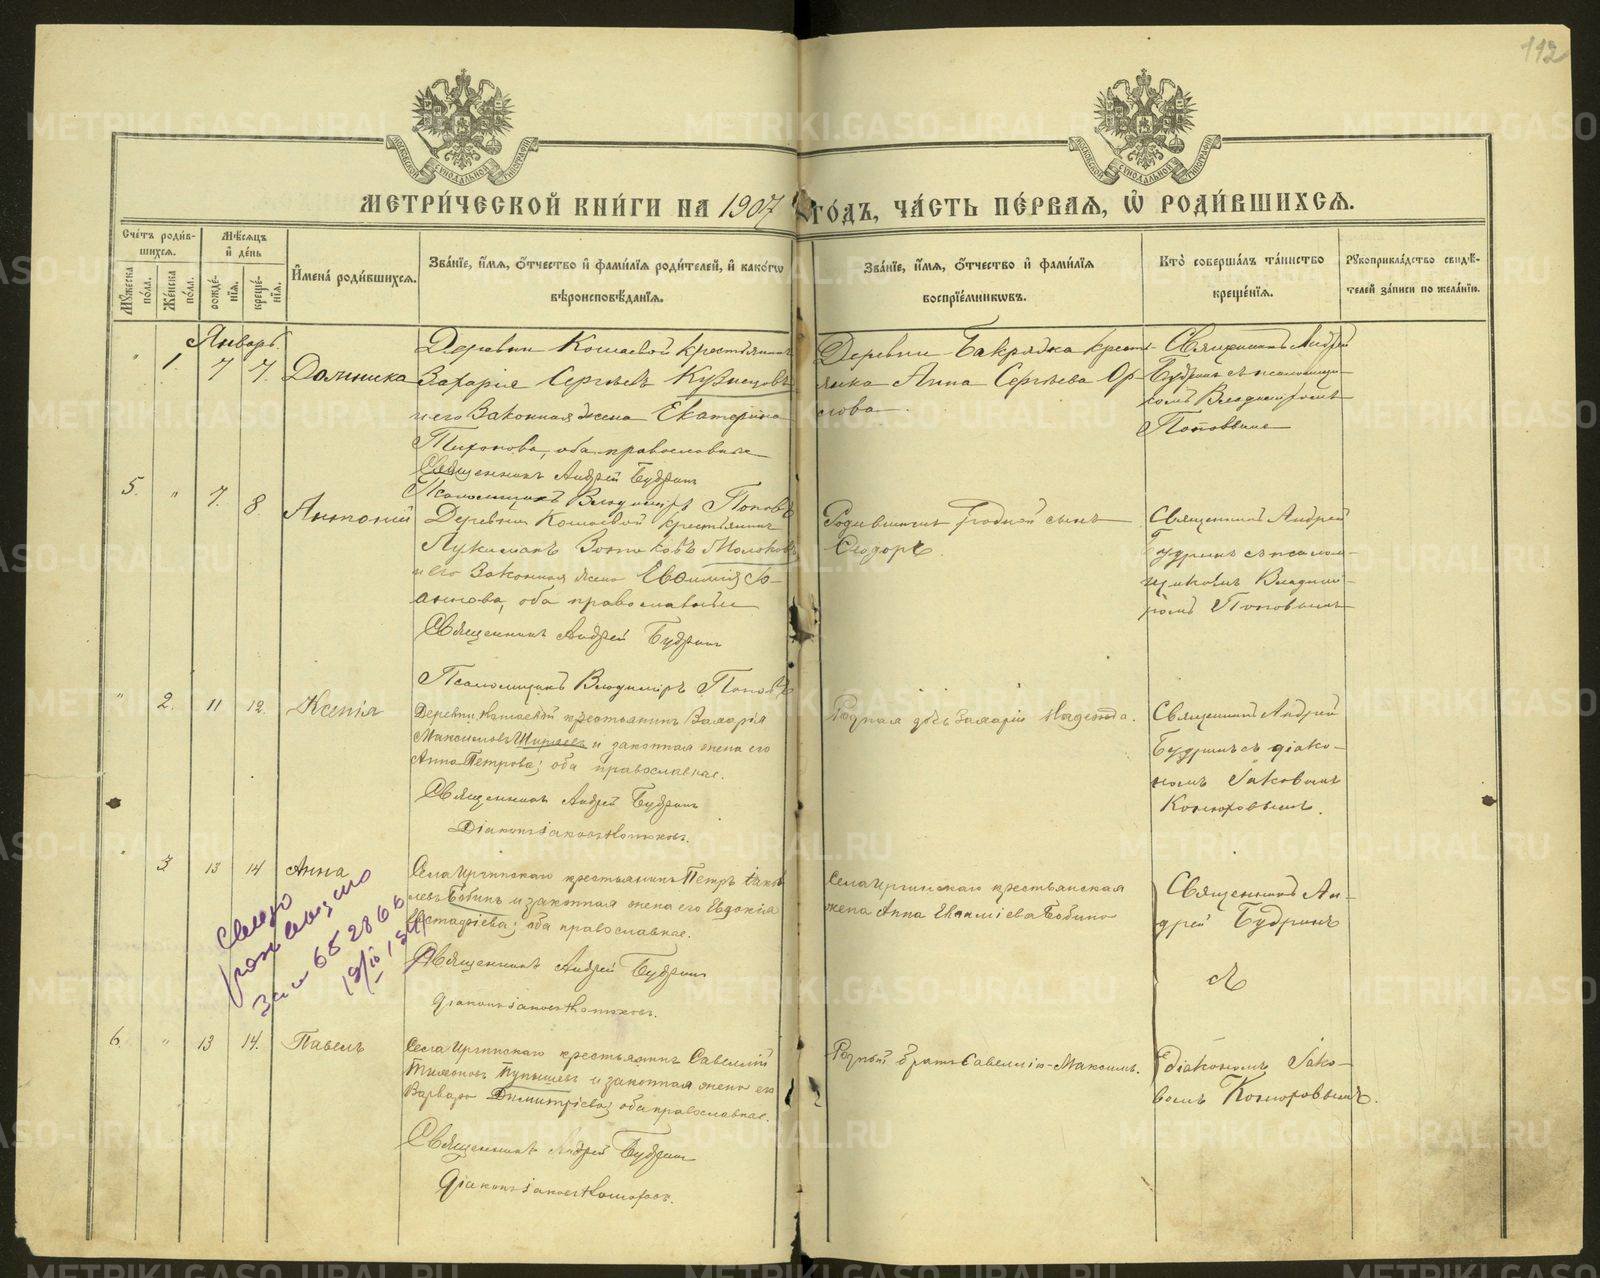 112
МЕТРИ́ЧЕСКОЙ КНИ́ГИ НА 1907 ГО́ДЪ, ЧА́СТЬ ПЕ́РВАѦ, Ѡ҆ РОДИ́ВШИХСѦ.
Сче́тъ роди́в-
шихсѧ.
Мꙋ́жеска по́ла.
Же́нска по́ла.
Мѣ́сѧцъ
и҆ де́нь
рожде́-
нїѧ.
креще́-
нїѧ.
И҆мена̀ роди́вшихсѧ.
Зва́нїе, и҆́мѧ, ѻ҆́тчество и҆ фами́лїѧ роди́телей, и҆ како́гѡ
вѣроисповѣ́данїѧ.
Зва́нїе, и҆́мѧ, ѻ҆́тчество и҆ фами́лїѧ
воспрїе́мникѡвъ.
Кто̀ соверша́лъ та́инство
креще́нїѧ.
Рꙋкоприкла́дство свидѣ́-
телей за́писи по жела́нїю.
Январь
" 1. 7 7. Домника
Деревни Кошаевой крестьянинъ
Захарія Сергѣевъ Кузнецовъ
и его законная жена Екатерина
Тихонова, оба православные
Священникъ Андрей Будринъ
Псаломщикъ Владиміръ Поповъ
Деревни Бакряжа кресть-
янка Анна Сергѣева
Священникъ Андрей
Будринъ съ псаломщи-
комъ Владиміромъ
Поповымъ
5. " 7. 8. Антоній
Деревни Кошаевой крестьянинъ
и его законная жена Евѳимія Іо-
аннова, оба православные
Священникъ Андрей Будринъ
Псаломщикъ Владиміръ Поповъ
Родившагося родной сынъ
Ѳеодоръ.
Священникъ Андрей
Будринъ съ псалом-
щикомъ Владимі-
ромъ Поповымъ
" 2. 11 12. Ксенія
Деревни Кошаевой крестьянинъ Захарія
Максимовъ Ширяевъ и законная жена его
Анна Петрова; оба православные.
Священникъ Андрей Будринъ
Діаконъ Іаковъ Конюховъ.
Родная дочь Захаріи Надежда.
Священникъ Андрей
Будринъ съ діако-
номъ Іаковомъ
Конюховымъ.
" 3 13 14 Анна
Села Иргинскаго крестьянинъ Петръ Іаков-
левъ Бобинъ и законная жена его Евдокія
Евстафіева; оба православные.
Священникъ Андрей Будринъ
діаконъ Іаковъ Конюховъ.
Села Иргинскаго крестьянская
жена Анна Евѳиміева Бобина
Священникъ Ан-
дрей Будринъ
съ
6. " 13 14. Павелъ
Села Иргинскаго крестьянинъ Савеллій
Тихоновъ Пупышевъ и законная жена его
Варвара Димитріева; оба православные.
Священникъ Андрей Будринъ
діаконъ Іаковъ Конюховъ.
Родной братъ Савеллія-Максимъ.
діакономъ Іако-
вомъ Конюховымъ.
METRIKI.GASO-URAL.RU